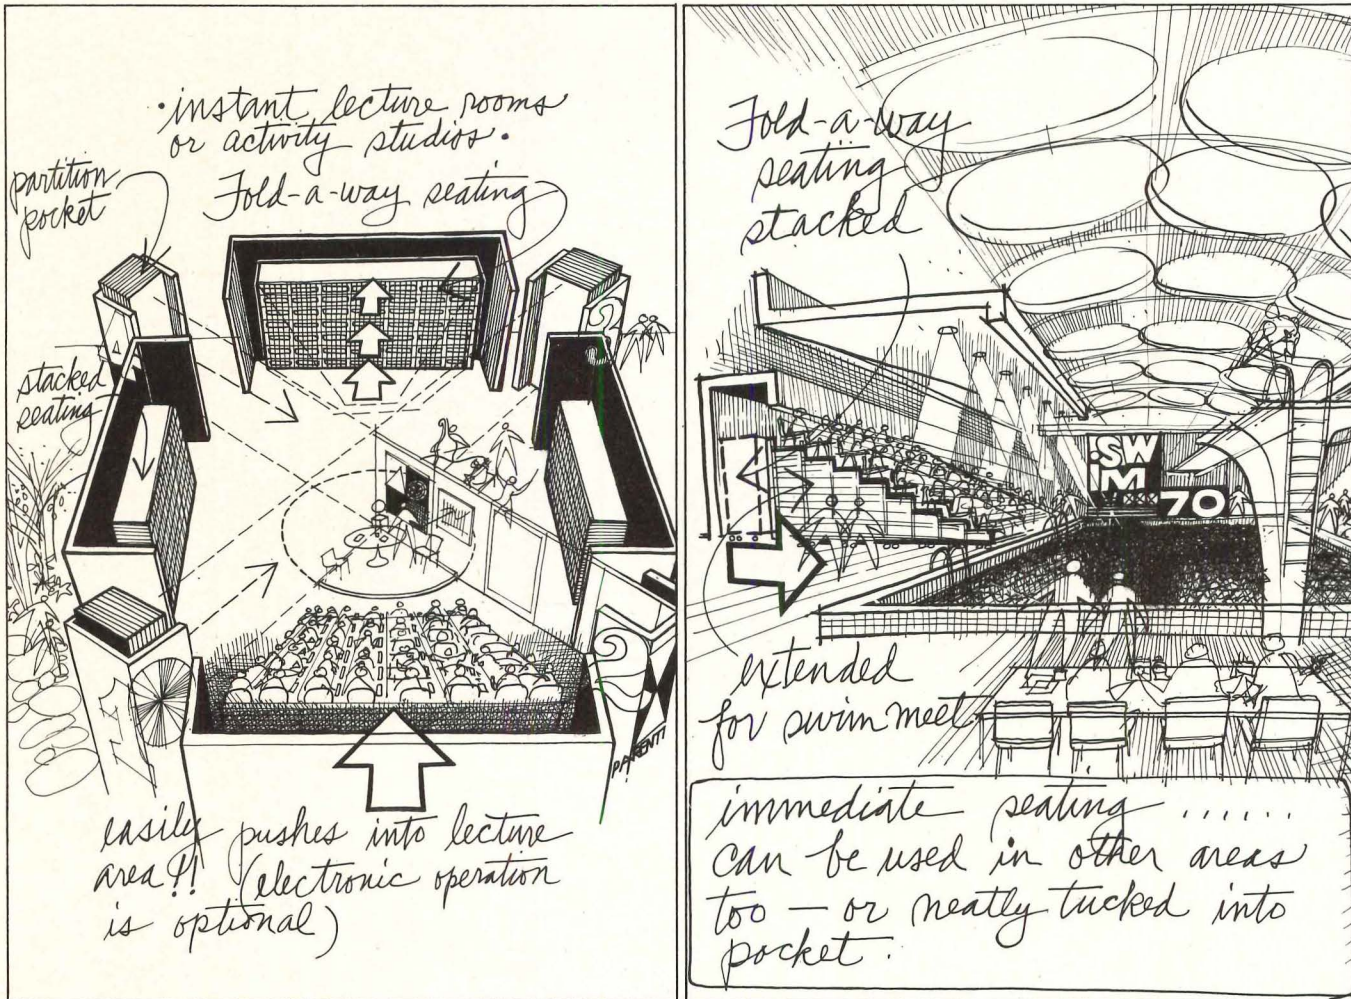 • instant lecture rooms
or activity studios •
partition
pocket
Fold-a-way seating
stacked
seating
2
2
PARENTI
easily pushes into lecture
area!! (electronic operation
is optional)
Fold-a-way
seating
stacked
SW
IM
70
extended
for swim meet
immediate seating ......
can be used in other areas
too — or neatly tucked into
pocket.